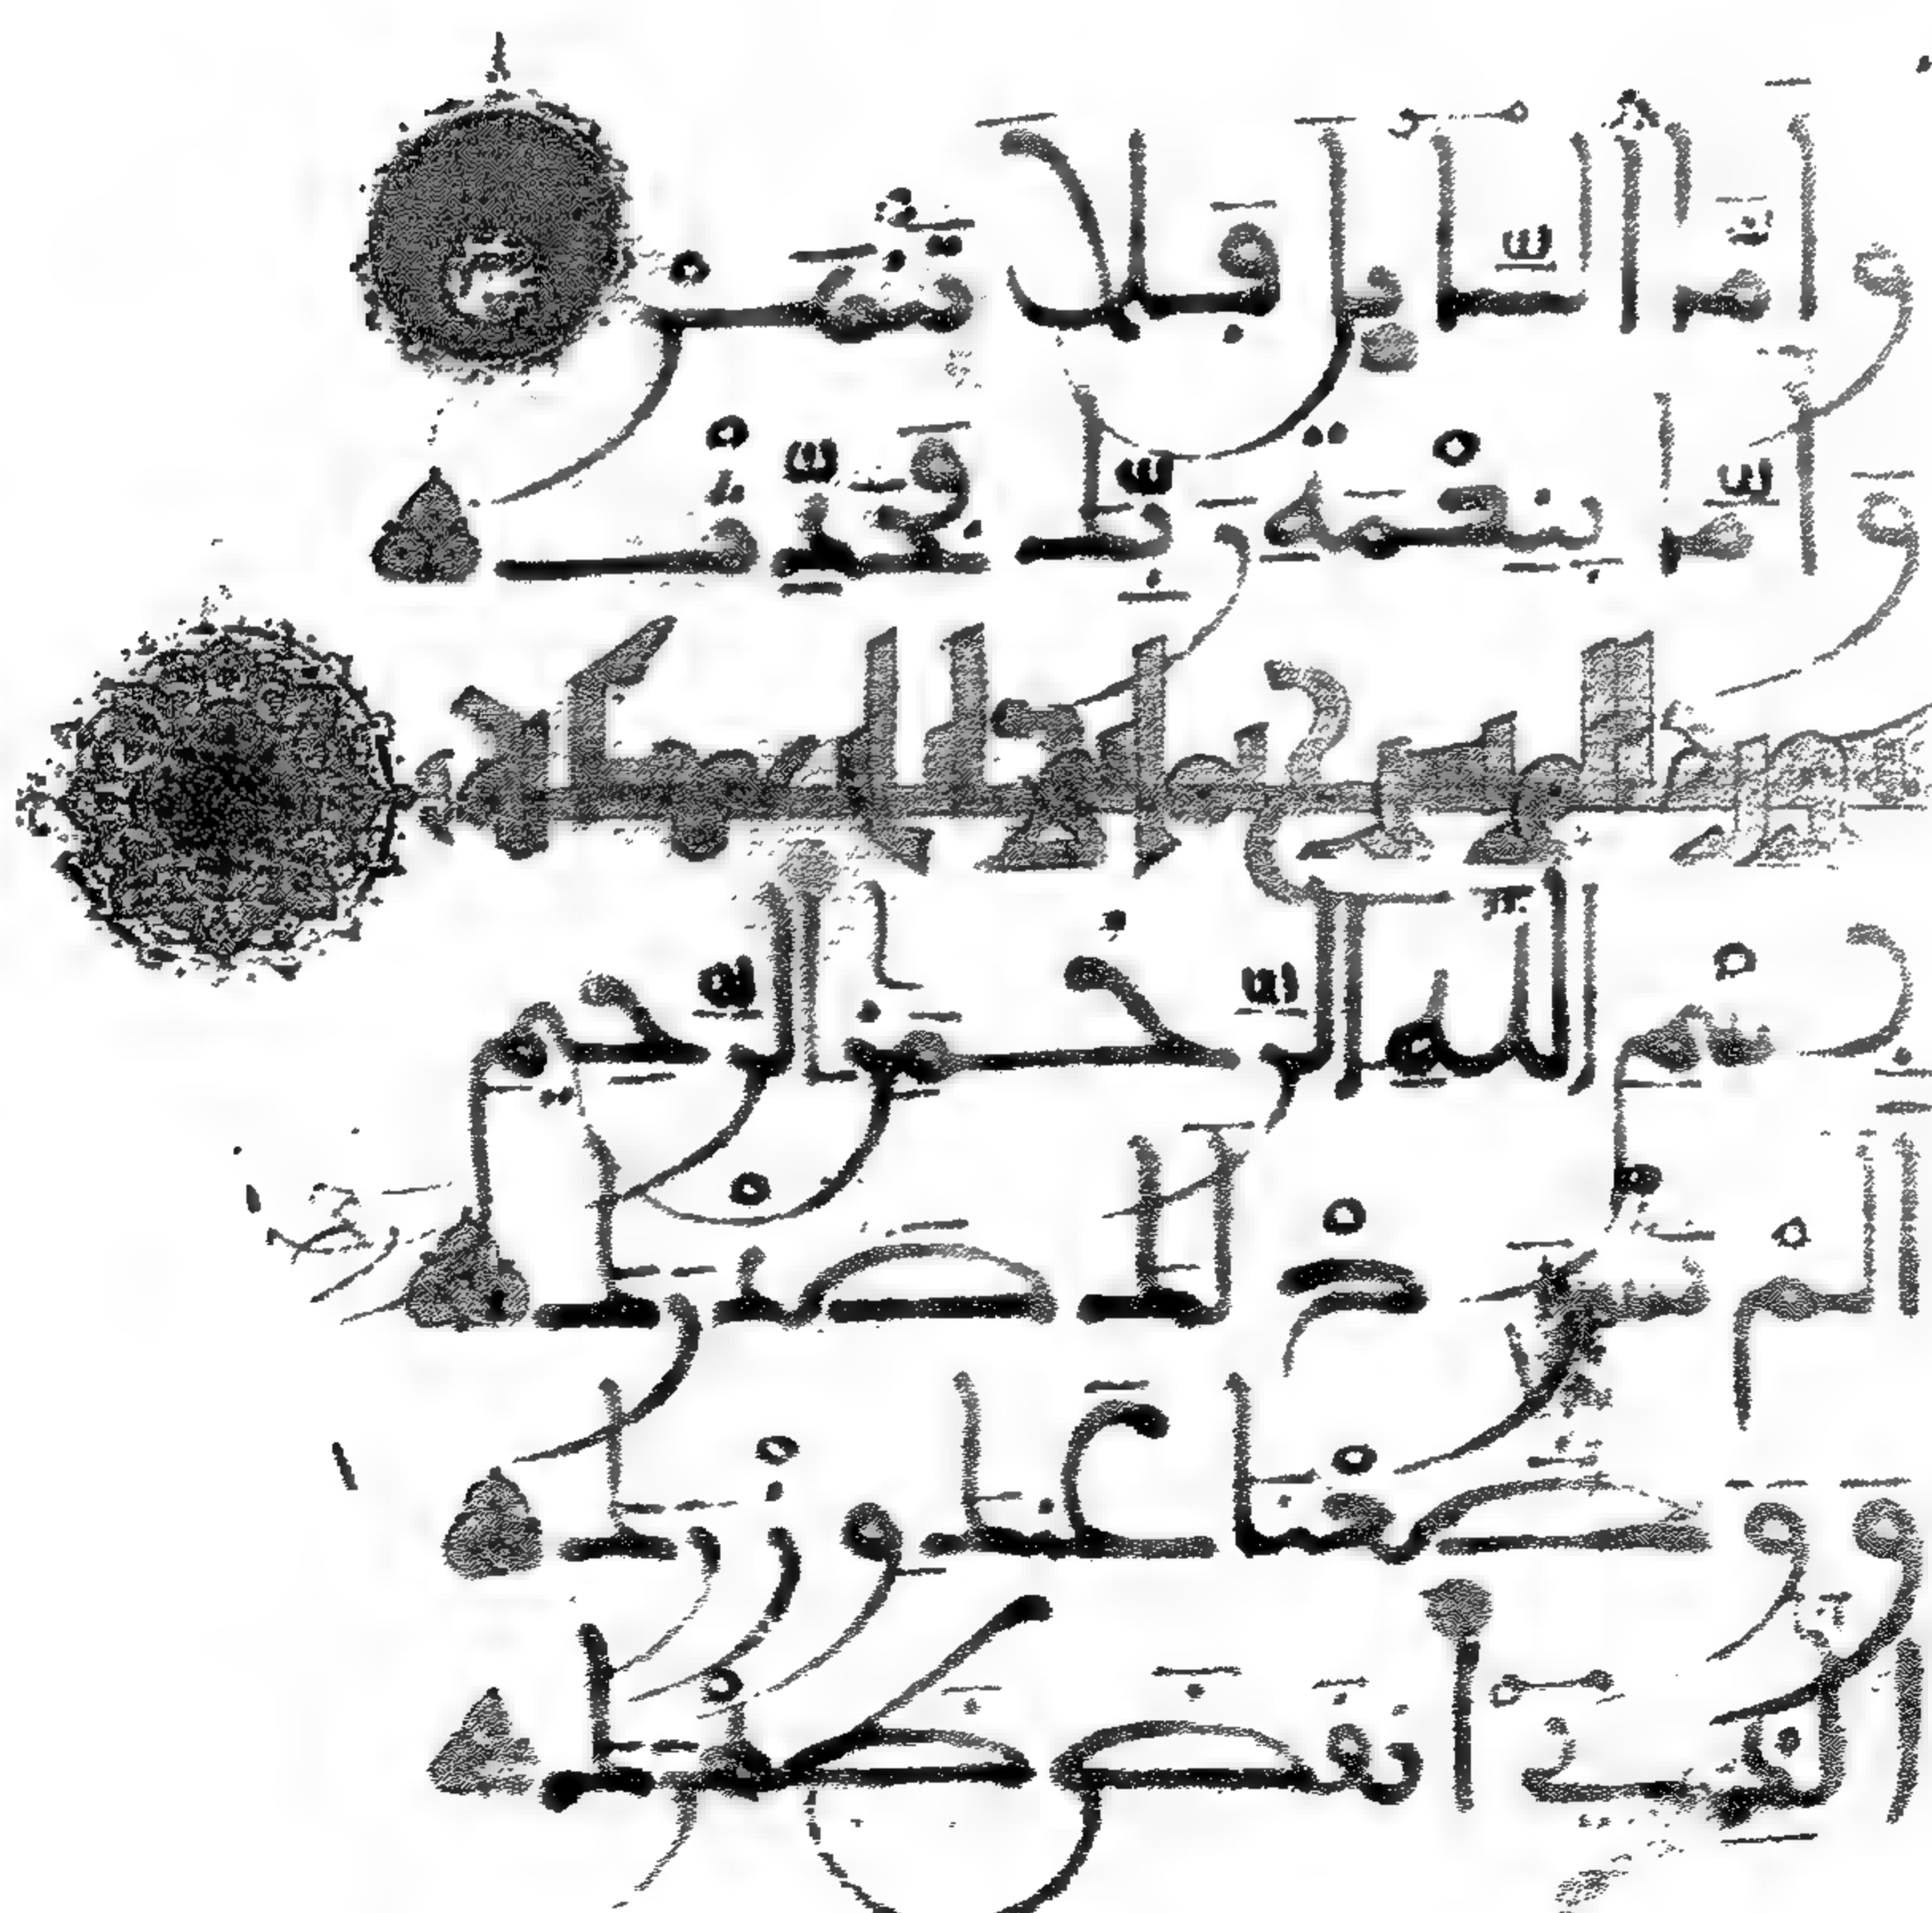 وَأَمَّا السَّآئِلَ فَلَا تَنْهَرْ
وَأَمَّا بِنِعْمَةِ رَبِّكَ فَحَدِّثْ
بِسْمِ اللَّهِ الرَّحْمَٰنِ الرَّحِيمِ
أَلَمْ نَشْرَحْ لَكَ صَدْرَكَ
وَوَضَعْنَا عَنكَ وِزْرَكَ
الَّذِىٓ أَنقَضَ ظَهْرَكَ